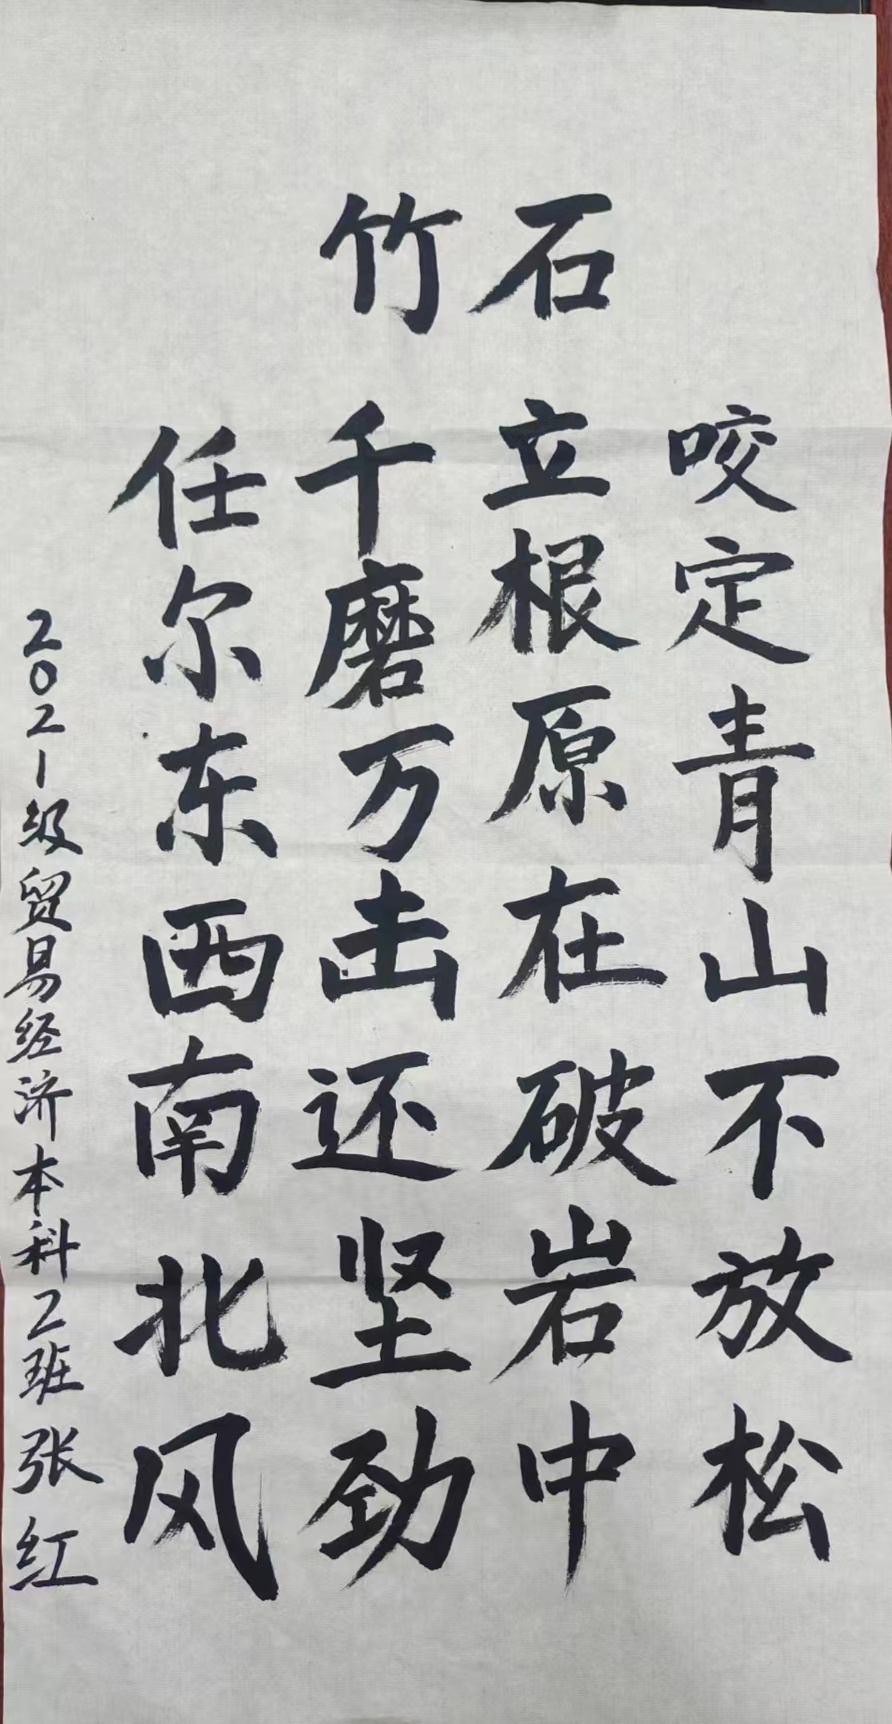 石竹
咬定青山不放松
立根原在破岩中
千磨万击还坚劲
任尔东西南北风
2021级贸易经济本科2班张红